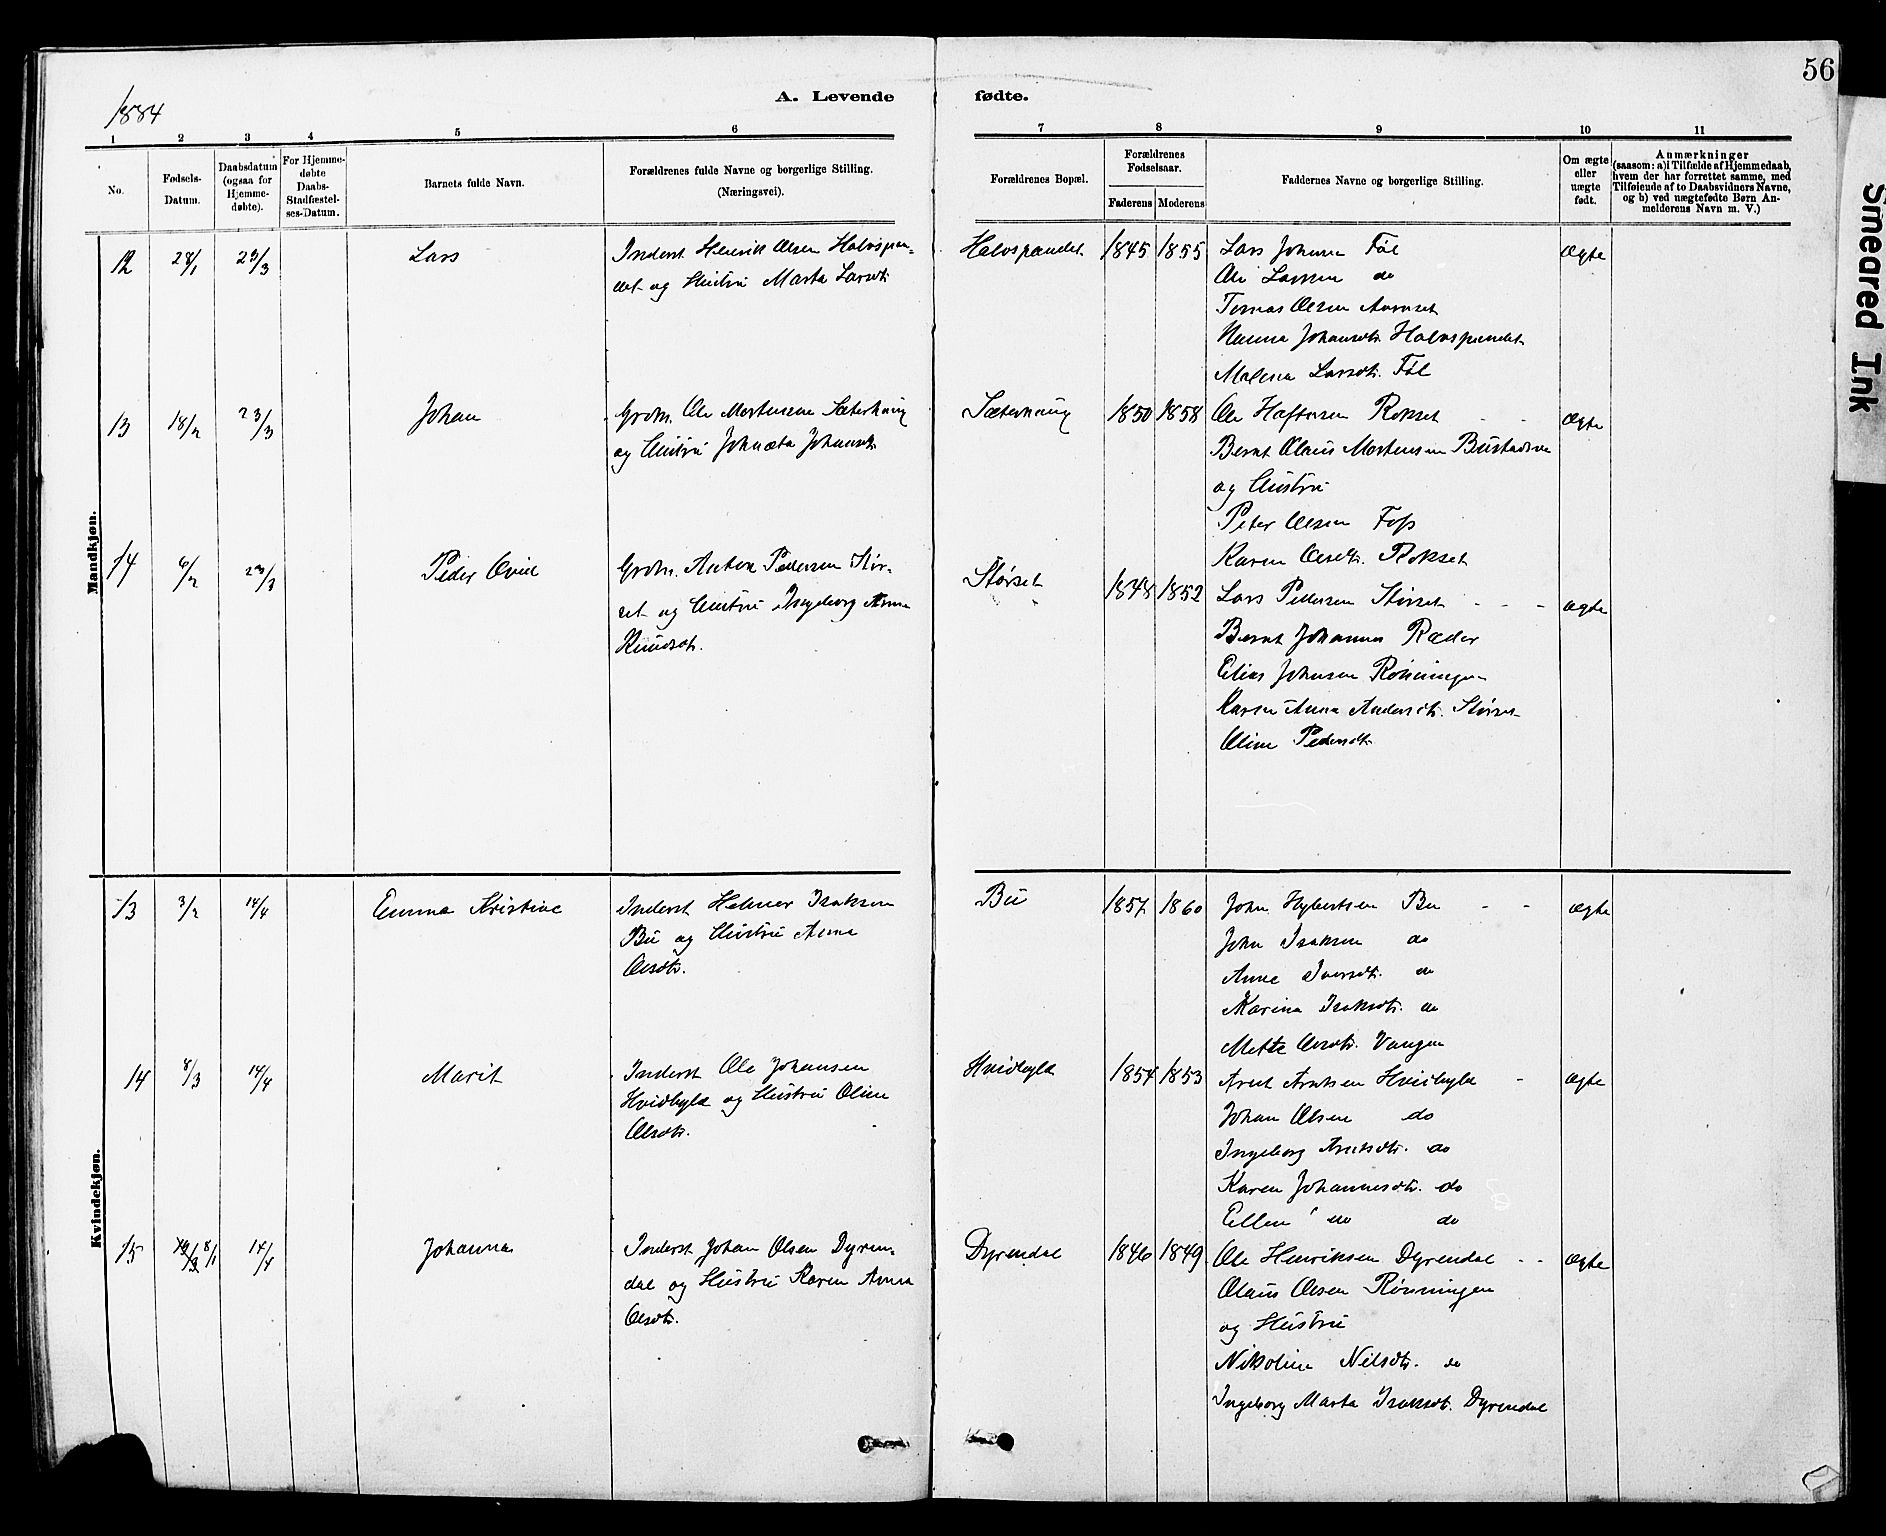 56
1884
A. Levende fødte.
1 2 3 4 5 6 7 8 9 10 11
No.
Fødsels-
Datum.
Daabsdatum
(ogsaa for
Hjemme-
døbte).
For Hjemme-
døbte
Daabs-
Stadfæstel-
ses-Datum.
Barnets fulde Navn.
Forældrenes fulde Navne og borgerlige Stilling.
(Næringsvei).
Forældrenes Bopæl.
Forældrenes
Fødselsaar.
Faderens Moderens
Faddernes Navne og borgerlige Stilling.
Om ægte
eller
uægte
født.
Anmærkninger
(saasom: a) i Tilfælde af Hjemmedaab,
hvem der har forrettet samme, med
Tilføiende af to Daabsvidners Navne,
og b) ved uægtefødte Børn An-
melderens Navn m. V.)
Mandkjøn.
12 28/1 23/3 Lars
Inderst Henrik Olsen Halvspan-
det og Hustru Marta Larsdtr
Halvspandet 1845 1855
Lars Johnsen Føl
Ole Larsen do
Tomas Olsen
Johansdtr. Halvspandet
Malena Larsdtr. Føl
Ægte
13 18/2 23/3 Johan
Grdbr. Ole Mortensen Sæterhaug
og Hustru Johansdtr.
Sæterhaug 1850 1858
Ole Haftorsen Rokset
Bernt Olaus Mortensen
og Hustru
Peter Olsen Foss
Karen Olsdtr. Rokset
Ægte
14 6/2 23/3 Peder
Grdbr. Anton Pedersen Stør-
set og Hustru Ingeborg Anna
Knudsdtr.
Størset 1848 1852
Lars Pedersen Størset
Bernt Johannes Ræder
Elias Johnsen Rønningen
Karen Anna Andersdtr. Størset
Oline Pedersdtr
Ægte
Kvindekjøn.
13 3/2 14/4 Emma Kristine
Inderst Helmer Isaksen
Bu og Hustru Anna
Olsdtr.
Bu 1857 1860
John Hybertsen Bu
John Isaksen do
Anne Iversdtr. do
Karina Isaksdtr. do
Mette Olsdtr. Vangen
Ægte
14 8/3 14/4 Marit
Inderst Ole Johansen
Hvidbyld og Hustru Oline
Olsdtr.
Hvidbyld 1854 1853
Arnt Arntsen Hvidbyld
Johan Olsen do
Ingeborg Arntsdtr. do
Karen Johannesdtr. do
Ellen do do
Ægte
15 8/1 14/4 Johanna
Inderst Johan Olsen Dyren-
dal og Hustru Karen Anna
Olsdtr.
Dyrendal 1846 1849
Ole Henriksen Dyrendal
Olaus Olsen Rønningen
og Hustru
Nikoline Nilsdtr. do
Ingeborg Marta Isaksdtr. Dyrendal
Ægte
Smeared Ink